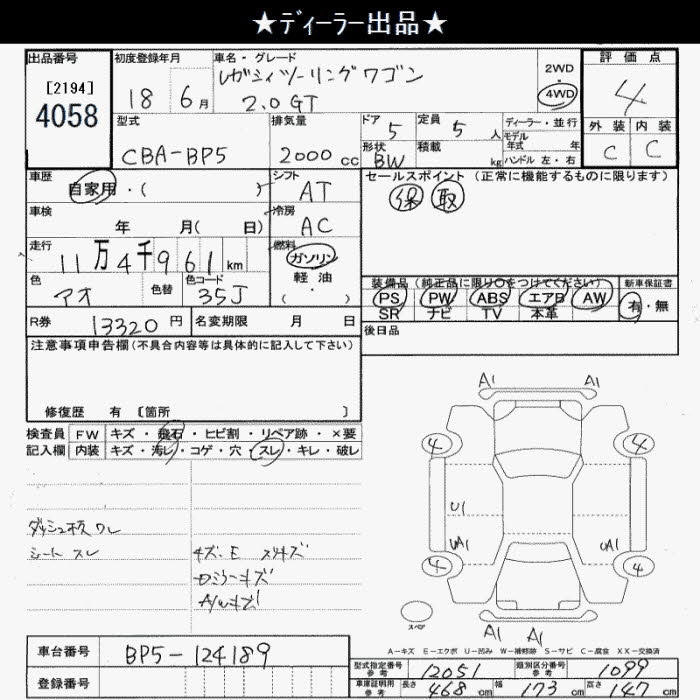 ★ディーラー出品★
出品番号
[2194]
4058
初度登録年月
18 6月
車名・グレード
レガシィツーリングワゴン
2.0GT
2WD
4WD
評価点
4
型式
CBA-BP5
排気量
2000cc
ドア 5
形状 BW
定員 5人
積載 kg
ディーラー・並行
モデル年式 年
ハンドル 左・右
外装 内装
C C
車歴
自家用・( )
シフト
AT
セールスポイント (正常に機能するものに限ります)
保 取
車検
年 月( 日)
冷房
AC
走行
11万4千961km
燃料
ガソリン
軽油
( ・ )
色
アオ
色替
色コード
35J
装備品 (純正品に限り○をつけてください)
新車保証書
PS PW ABS エアB AW
SR ナビ TV 本革
有・無
R券 13320円
名変期限 月 日
後日品
注意事項申告欄(不具合内容等は具体的に記入して下さい)
修復歴 有 [箇所 ]
検査員記入欄
FW キズ・飛石・ヒビ割・リペア跡・×要
内装 キズ・汚レ・コゲ・穴・スレ・キレ・破レ
シート スレ
A1 A1
4 4
U1
UA1 UA1
4 4
スペア
A1 A1
A-キズ E-エクボ U-凹み W-補修跡 S-サビ C-腐食 XX-交換済
車台番号 BP5-124189
登録番号
型式指定番号 参考 12051
類別区分番号 参考 1099
車庫証明用 参考 長さ 468cm 幅 173cm 高さ 147cm